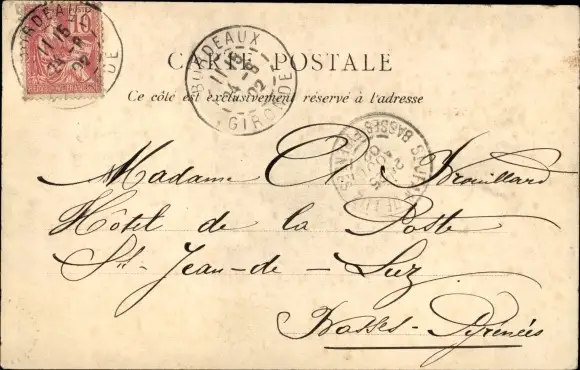 BORDEAUX
11 15
24 -8
02
GIRONDE
10
CARTE POSTALE
Ce côté est exclusivement réservé à l'adresse
Madame A. Brouillard
Hôtel de la Poste
St-Jean-de-Luz
Basses-Pyrénées